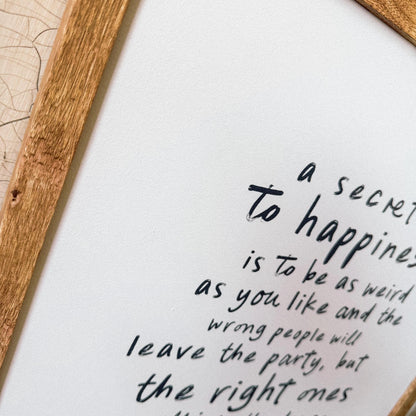 a secret
to happiness
is to be as weird
as you like and the
wrong people will
leave the party, but
the right ones